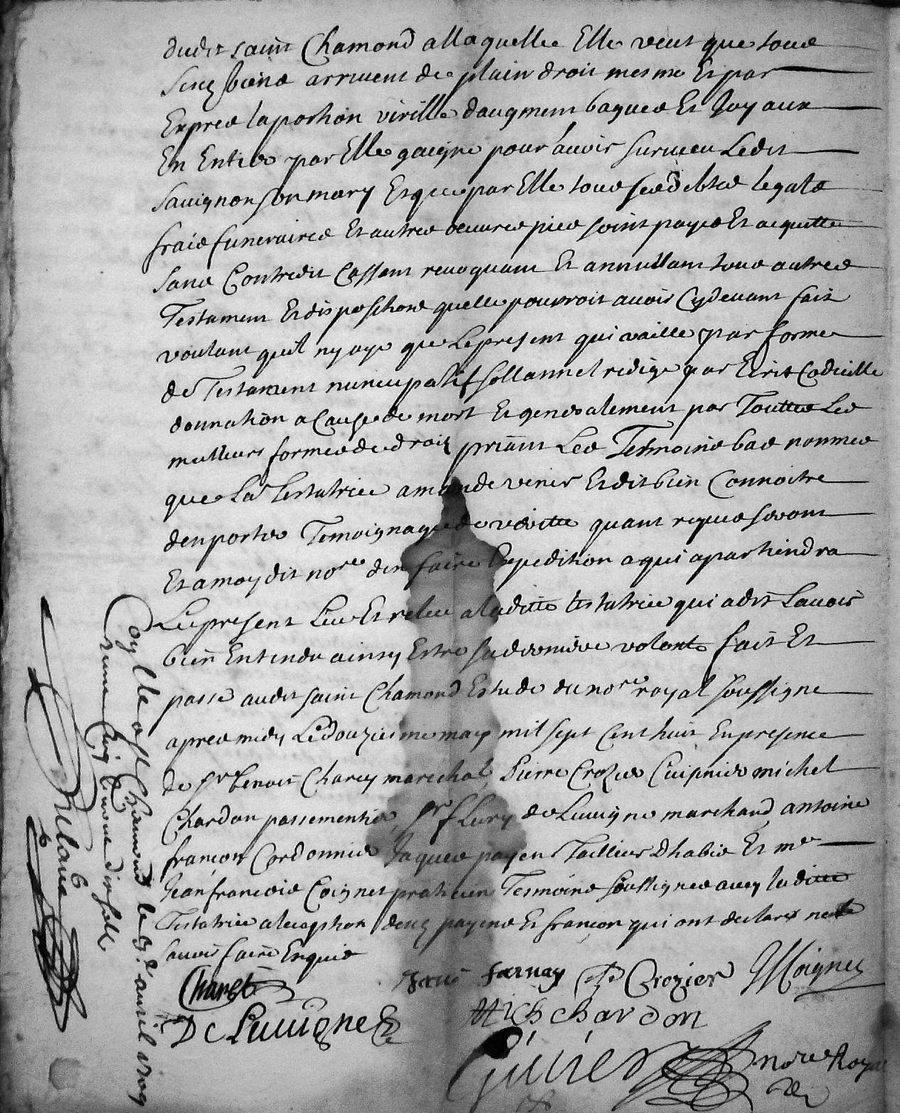 dudit saint Chamond a llaquelle Elle veut que tous
ses biens arrivent de plain droit mesme Et par
Expres la portion virille daugment bagues Et Joyaux
En Entier par Elle gaigné pour avoir survieu Ledit
Sauvignon son mary Et que par Elle tous ses debtes legats
fraie funeraires Et autres oeuvres pies soint payés Et acquittes
sans Contredit Cassant revoquant Et annullant tous autres
Testament Et dispositions quelle pouvroit avoir Cydevant fait
voulant quil ny aye que Le present qui vaille par forme
de Testament nuncupatif sollannel redigé par Ecrit Codicille
donnation a Cause de mort Et generalement par Touttes Les
meilleurs formes de droit priant Les Tesmoins bas nommes
que La Testatrice a mandé venir Et dit bien Connoitre
den porter Temoignage de veritte quant requis seront
Et a moy dit nore. den faire Expedition a qui apartiendra
Le present Leu Et releu a laditte testatrice qui a dit Lavoir
bien Entendu ainsy Estre sa derniere volonté fait Et
passé audit saint Chamond Estude du nore. royal soussigné
apres midy Le douziesme may mil sept Cent huit En presence
de Sr. benoit Charey marechal, Pierre Crozier Cuisinier michel
Chardon passementié Sr. fleury de Luvigne marchand antoine
françon Cordonnié Jaques payen Taillieur dhabis Et me
Jean francois Coignet praticien Tesmoins soussignes avec laditte
Testatrice a lexeption desd. payens Et françon qui ont declaré ne
savoir faire Enquis
Charet farnay P Crozier JCoignet
De Luvigne Mich chardon
nore Royal
Conlle a St Chamond le 9e avril 1709